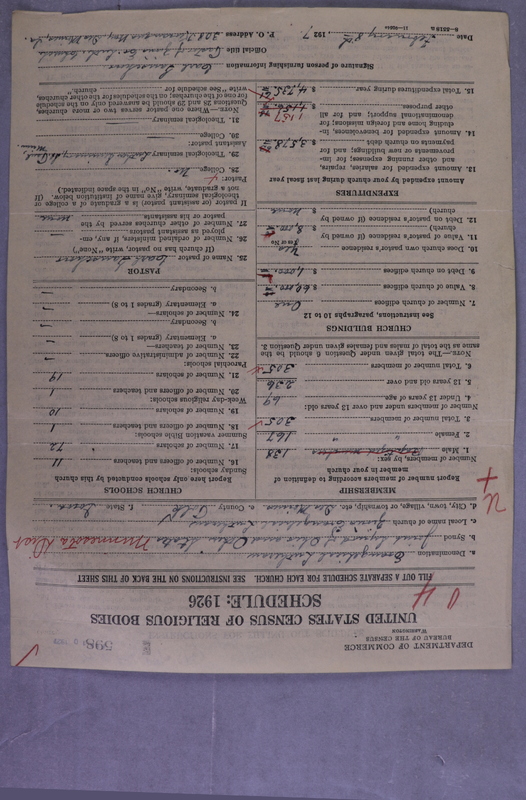 DEPARTMENT OF COMMERCE
BUREAU OF THE CENSUS
WASHINGTON
598
UNITED STATES CENSUS OF RELIGIOUS BODIES
SCHEDULE: 1926
FILL OUT A SEPARATE SCHEDULE FOR EACH CHURCH. SEE INSTRUCTIONS ON THE BACK OF THIS SHEET
a. Denomination Evangelical Lutheran
b. Synod Joint Synod of Ohio and Other States Minnesota Dist
c. Local name of church Evangelical Lutheran
d. City, town, village, or township, etc. Des Moines e. County Polk f. State Iowa
MEMBERSHIP
Report number of members according to definition of member in your church
Number of members, by sex:
1. Male 138
2. Female 167
3. Total members 305
Number of members under and over 13 years old:
4. Under 13 years of age 69
5. 13 years old and over 236
6. Total number of members 305
NOTE.—The Total given under Question 6 should be the
same as the total of males and females given under Question 3.
CHURCH BUILDINGS
See instructions, paragraphs 10 to 12
7. Number of church edifices One
8. Value of church edifices $
9. Debt on church edifices $
10. Does church own pastor's residence Yes
(Yes or No)
11. Value of pastor's residence (if owned by
church) $
12. Debt on pastor's residence (if owned by
church) $ None
EXPENDITURES
Amount expended by your church during last fiscal year
13. Amount expended for salaries, repairs,
and other running expenses; for im-
provements or new buildings; and for
payments on church debt $ 3,578
14. Amount expended for benevolences, in-
cluding home and foreign missions; for
denominational support; and for all
other purposes $ 1157
15. Total expenditures during year $ 4,735
CHURCH SCHOOLS
Report here only schools conducted by this church
Sunday schools:
16. Number of officers and teachers 11
17. Number of scholars 72
Summer vacation Bible schools:
18. Number of officers and teachers 1
19. Number of scholars 10
Week-day religious schools:
20. Number of officers and teachers 1
21. Number of scholars 19
Parochial schools:
22. Number of administrative officers
23. Number of teachers—
a. Elementary (grades 1 to 8)
b. Secondary
24. Number of scholars—
a. Elementary (grades 1 to 8)
b. Secondary
PASTOR
25. Name of pastor
(If church has no pastor, write "None")
26. Number of ordained ministers, if any, em-
ployed as assistant pastors
27. Number of other churches served by the
pastor or his assistants None
If pastor (or assistant pastor) is a graduate of a college or
theological seminary, give name of institution below. (If
not a graduate, write "No" in the space indicated.)
Pastor:
28. College No
29. Theological seminary Luther Seminary St. Paul Minn
Assistant pastor:
30. College
31. Theological seminary
NOTE.—Where one pastor serves two or more churches,
Questions 28 and 29 should be answered only on the schedule
for one of the churches; on the schedules for the other churches,
write "See schedule for church."
Signature of person furnishing information
Official title
P. O. Address
Date February 8th 1927